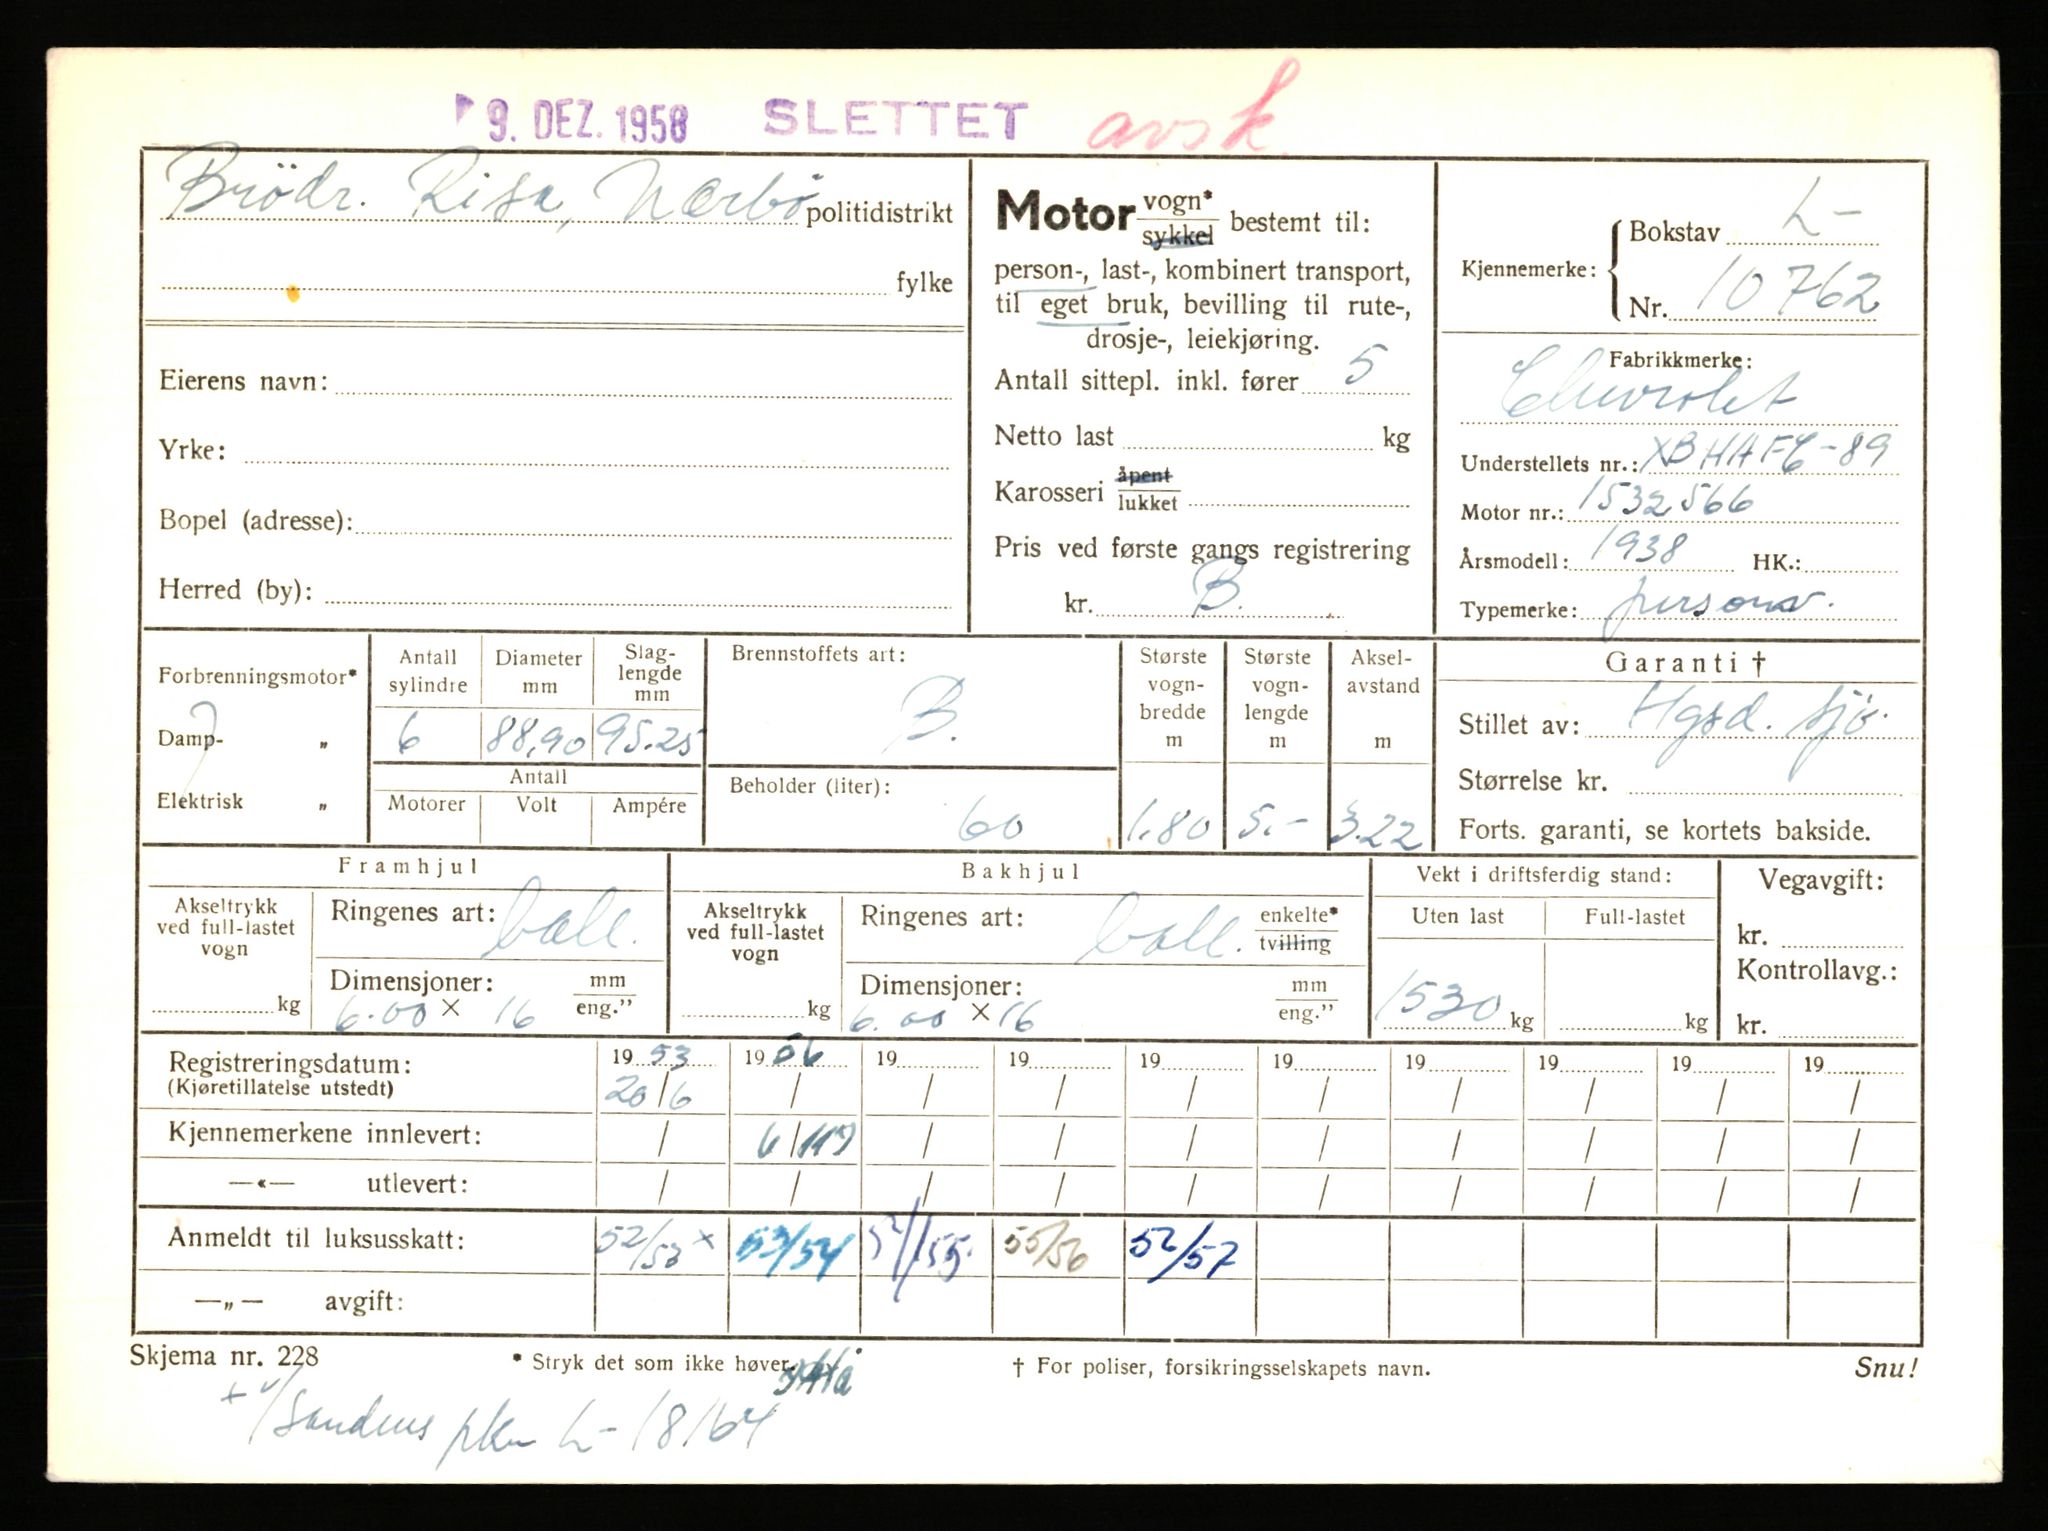 9. DEZ. 1958 SLETTET avsk.
Brödr. Risa, Nærbö politidistrikt
fylke
Eierens navn:
Yrke:
Bopel (adresse):
Herred (by):
Motor vogn* sykkel bestemt til:
person-, last-, kombinert transport,
til eget bruk, bevilling til rute-,
drosje-, leiekjøring.
Antall sittepl. inkl. fører 5
Netto last kg
Karosseri åpent lukket
Pris ved første gangs registrering
kr. B.
Kjennemerke: Bokstav L-
Nr. 10762
Fabrikkmerke:
Chevrolet
Understellets nr.: XBHAFC-89
Motor nr.: 1532566
Årsmodell: 1938 HK.:
Typemerke: personv.
Forbrenningsmotor*
Damp- „
Elektrisk „
Antall sylindre 6
Diameter mm 88,90
Slag-lengde mm 95.25
Antall
Motorer Volt Ampére
Brennstoffets art:
B.
Beholder (liter):
60
Største vogn-bredde m 1.80
Største vogn-lengde m 5.-
Aksel-avstand m 3.22
Garanti †
Stillet av: Hgsd. Sjö.
Størrelse kr.
Forts. garanti, se kortets bakside.
Framhjul
Akseltrykk ved full-lastet vogn
kg
Ringenes art: ball.
Dimensjoner: mm eng.”
6.00 × 16
Bakhjul
Akseltrykk ved full-lastet vogn
kg
Ringenes art: ball. enkelte* tvilling
Dimensjoner: mm eng.”
6.00 × 16
Vekt i driftsferdig stand:
Uten last Full-lastet
1530 kg kg
Vegavgift:
kr.
Kontrollavg.:
kr.
Registreringsdatum: 19 53 19 56 19 19 19 19 19 19 19 19
(Kjøretillatelse utstedt) 20/6 / / / / / / / / /
Kjennemerkene innlevert: / 6/ / / / / / / / /
—«— utlevert: / / / / / / / / / /
Anmeldt til luksusskatt: 52/53 × 53/54 /55 55/56 56/57
—„— avgift:
Skjema nr. 228 * Stryk det som ikke høver. † For poliser, forsikringsselskapets navn. Snu!
+ v/ Sandnes pkr L-18164